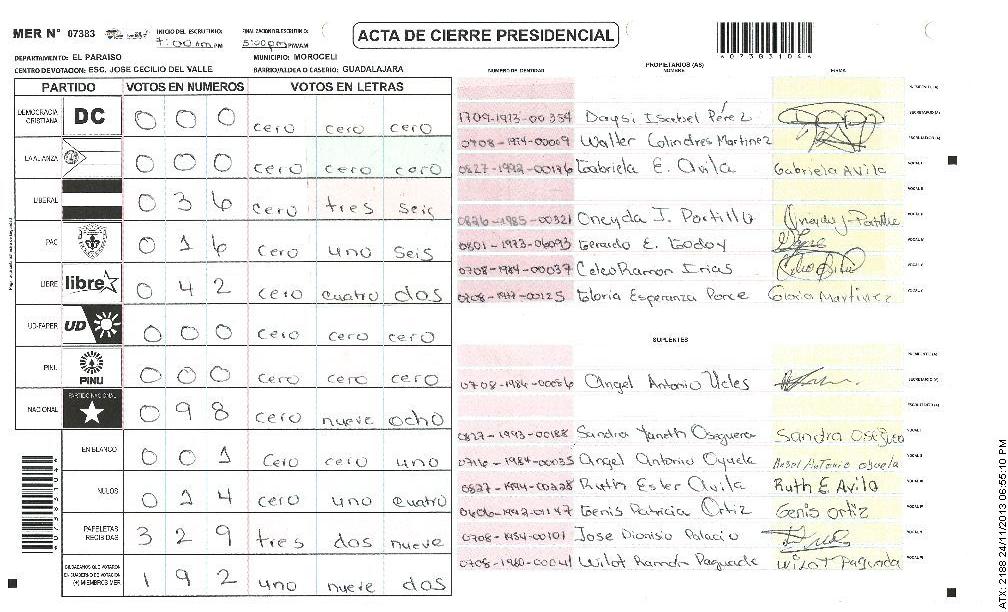 MER N° 07383
INICIO DEL ESCRUTINIO: 7:00 am PM
FINALIZACION DEL ESCRUTINIO: 5:00 pm PM/AM
ACTA DE CIERRE PRESIDENCIAL
DEPARTAMENTO: EL PARAISO
MUNICIPIO: MOROCELI
CENTRO DE VOTACION: ESC. JOSE CECILIO DEL VALLE
BARRIO/ALDEA O CASERIO: GUADALAJARA
PARTIDO VOTOS EN NUMEROS VOTOS EN LETRAS
DEMOCRACIA CRISTIANA DC 0 0 0 cero cero cero
LA ALIANZA 0 0 0 cero cero cero
LIBERAL 0 3 6 cero tres seis
PAC 0 1 6 cero uno seis
LIBRE libre 0 4 2 cero cuatro dos
UD-FAPER UD 0 0 0 cero cero cero
PINU PINU 0 0 0 cero cero cero
NACIONAL PARTIDO NACIONAL 0 9 8 cero nueve ocho
EN BLANCO 0 0 1 cero cero uno
NULOS 0 1 4 cero uno cuatro
PAPELETAS RECIBIDAS 3 2 9 tres dos nueve
CIUDADANOS QUE VOTARON EN CUADERNO DE VOTACION (+) MIEMBROS MER 1 9 2 uno nueve dos
PROPIETARIOS (AS)
NUMERO DE IDENTIDAD NOMBRE FIRMA
1709-1973-00354 Daysi Isabel Pérez
0708-1974-00009 Walter Colindres Martinez
0827-1992-00176 Gabriela E. Avila Gabriela Avila
0826-1985-00321 Oneyda J. Portillo Oneyda J-Portillo
0801-1973-06093 Gerardo E. Godoy
0708-1984-00037 Celeo Ramon Irias
0708-1947-00125 Gloria Esperanza Ponce Gloria Martinez
SUPLENTES
0708-1986-00056 Angel Antonio Ucles
0827-1993-00188 Sandra Yaneth Oseguera Sandra Oseguera
0716-1984-00035 Angel Antonio Oyuela Angel Antonio oyuela
0827-1994-00228 Ruth Ester Avila Ruth E. Avila
0606-1992-01147 Genis Patricia Ortiz Genis Ortiz
0708-1954-00101 Jose Dionisio Palacio
0708-1960-00041 Wilot Ramón Paguada Wilot Paguada
*07383104*
ATX: 2188 24/11/2013 06:55:10 PM